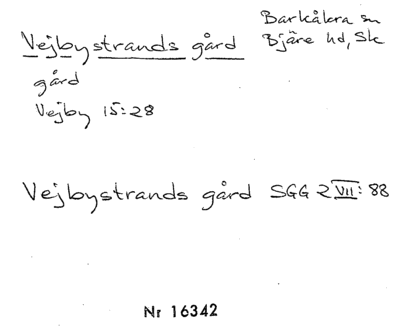 Vejbystrands gård
Barkåkra sn
Bjäre hd, Sk
gård
Vejby 15:28
Vejbystrands gård SGG 2 VII: 88
Nr 16342